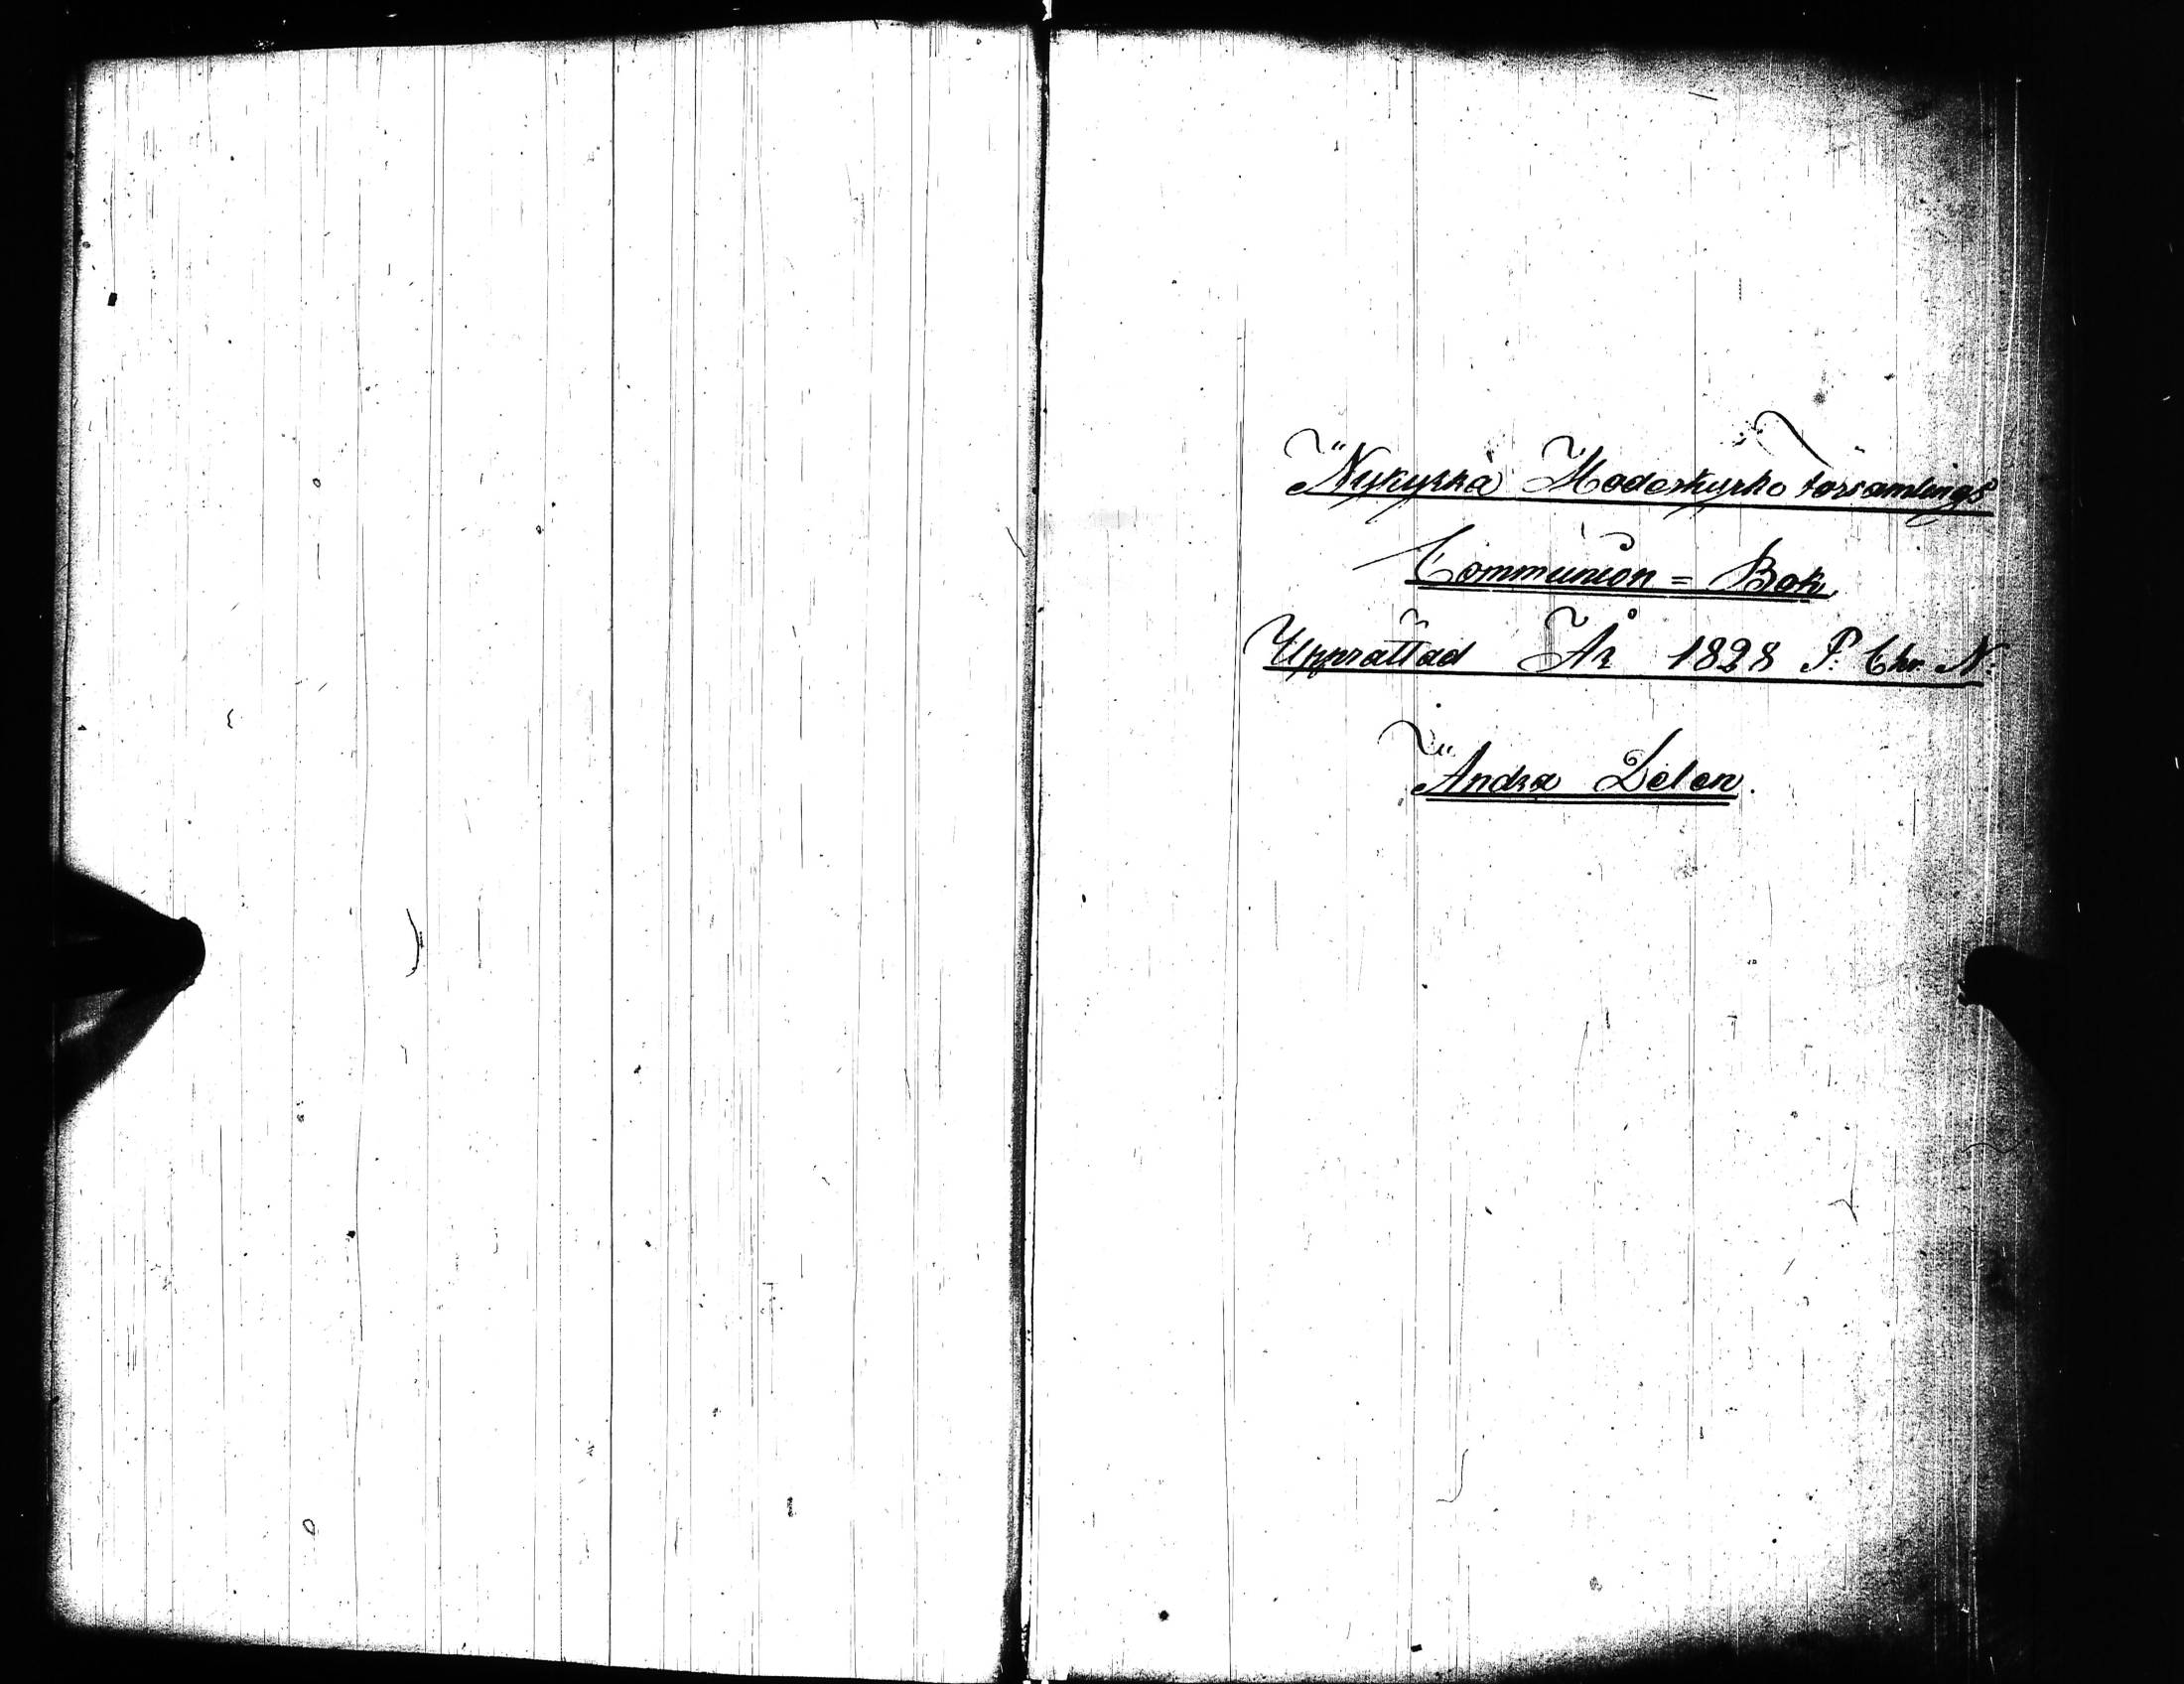 Nykyrka Moderkyrko församlings
Communion = Bok,
Upprättad År 1828 P. Chr. N:
Andra Delen.